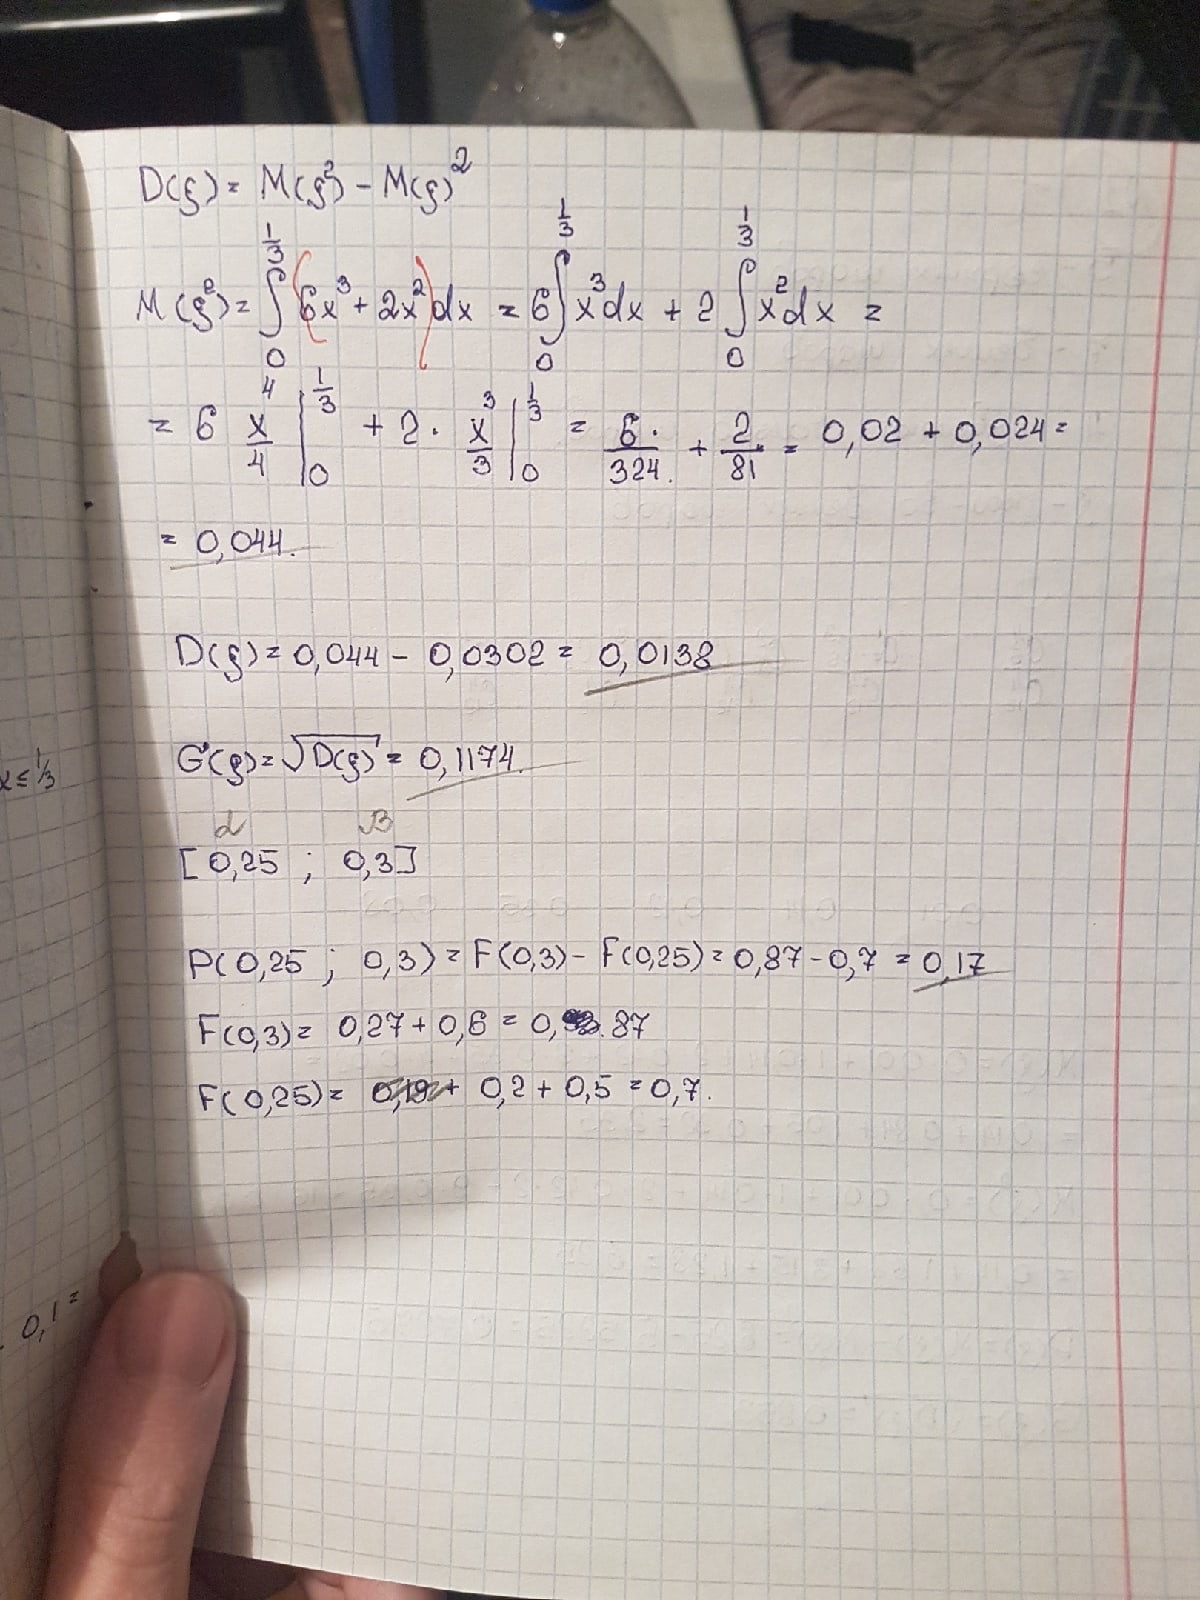 D(ξ) = M(ξ²) - M(ξ)²
M(ξ²) = ∫₀^(1/3) (6x³ + 2x²)dx = 6∫₀^(1/3) x³dx + 2∫₀^(1/3) x²dx =
= 6 x⁴/4 |₀^(1/3) + 2 · x³/3 |₀^(1/3) = 6/324 + 2/81 = 0,02 + 0,024 =
= 0,044.
D(ξ) = 0,044 - 0,0302 = 0,0138
x ≤ 1/3
σ(ξ) = √D(ξ) = 0,1174.
α β
[0,25 ; 0,3]
P(0,25 ; 0,3) = F(0,3) - F(0,25) = 0,87 - 0,7 = 0,17
F(0,3) = 0,27 + 0,6 = 0,87
F(0,25) = 0,2 + 0,5 = 0,7.
0,1 =